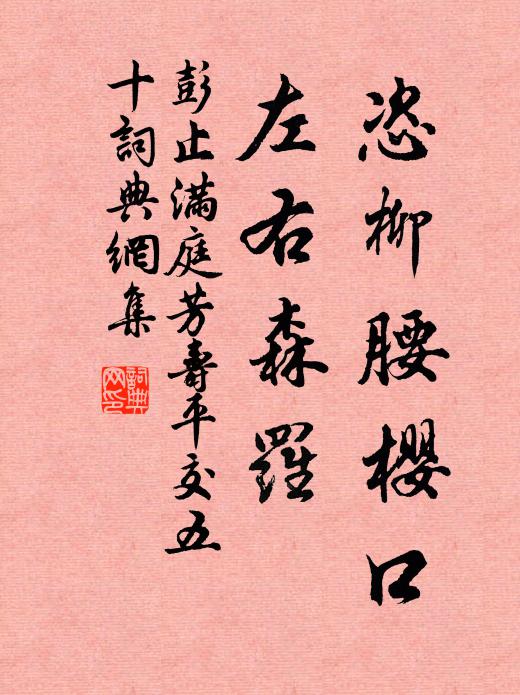 恣柳腰櫻口
左右森羅
彭止滿庭芳壽平交五
十詞典網集
詞典
网印